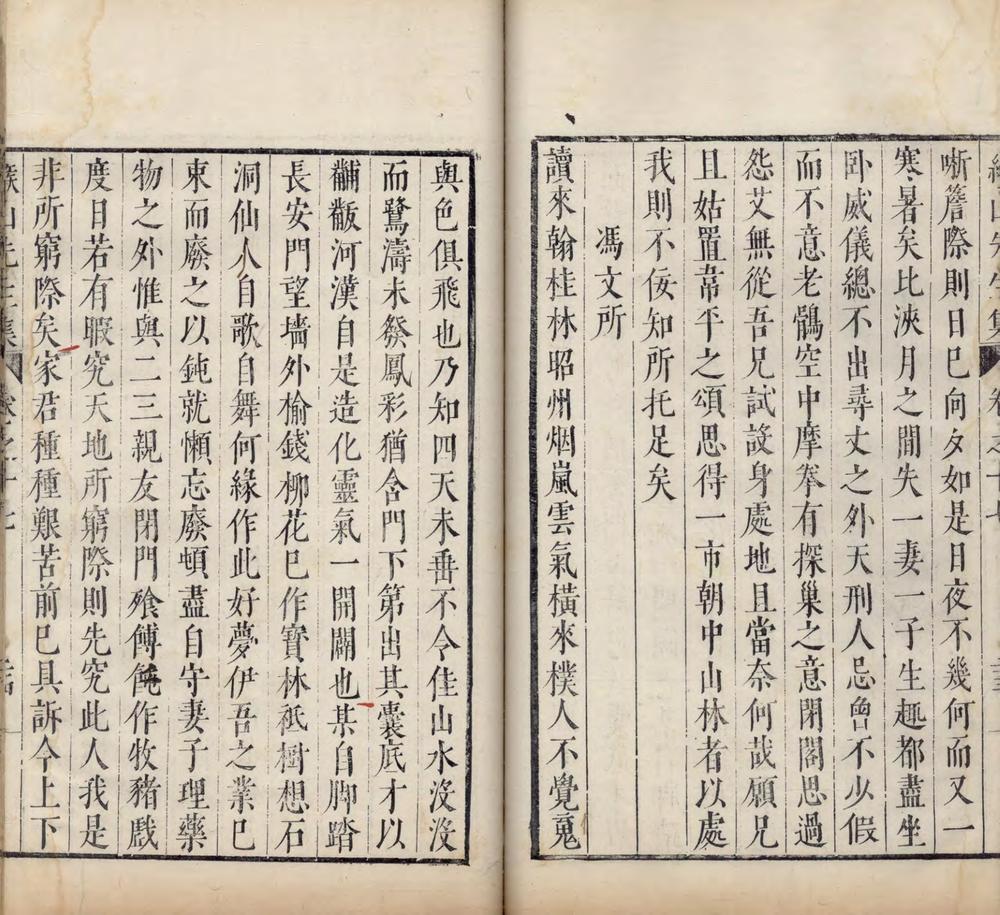 緱山先生集 卷之十七
晰簷際則日巳向夕如是日夜不幾何而又一
寒暑矣比浹月之間失一妻一子生趣都盡坐
卧威儀總不出尋丈之外天刑人忌曾不少假
而不意老鶻空中摩拳有探巢之意閉閣思過
怨艾無從吾兄試設身處地且當奈何哉願兄
且姑置韋平之頌思得一市朝中山林者以處
我則不佞知所托足矣
馮文所
讀來翰桂林昭州烟嵐雲氣橫來樸人不覺䰟
與色俱飛也乃知四天未垂不令佳山水沒沒
而鷺濤未發鳳彩猶含門下第出其囊底才以
黼黻河漢自是造化靈氣一開闢也某自脚踏
長安門望墻外榆錢柳花巳作寶林祇樹想石
洞仙人自歌自舞何緣作此好夢伊吾之業巳
東而廢之以鈍就懶忘廢頓盡自守妻子理藥
物之外惟與二三親友閉門飱餺飥作牧豬戲
度日若有暇究天地所窮際則先究此人我是
非所窮際矣家君種種艱苦前巳具訴今上下
緱山先生集 卷之十七